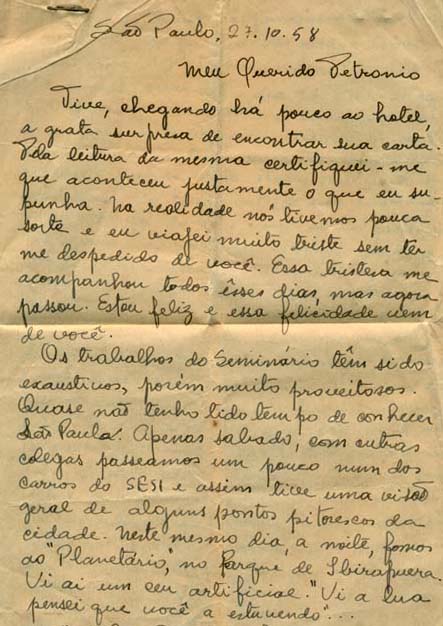 São Paulo, 27.10.58
Meu Querido Petronio
Tive, chegando há pouco ao hotel,
a grata surpresa de encontrar sua carta.
Pela leitura da mesma certifiquei-me
que aconteceu justamente o que eu su-
punha. Na realidade nós tivemos pouca
sorte e eu viajei muito triste sem ter
me despedido de você. Essa tristeza me
acompanhou todos êsses dias, mas agora
passou. Estou feliz e essa felicidade vem
de você.
Os trabalhos do Seminário têm sido
exaustivos, porém muito proveitosos.
Quase não tenho tido tempo de conhecer
São Paulo. Apenas sabado, com outras
colegas passeamos um pouco num dos
carros do SESI e assim tive uma visão
geral de alguns pontos pitorescos da
cidade. Neste mesmo dia, a noite, fomos
ao "Planetário", no Parque de Ibirapuera.
Vi ai um céu artificial. "Vi a lua
pensei que você a estivendo"...